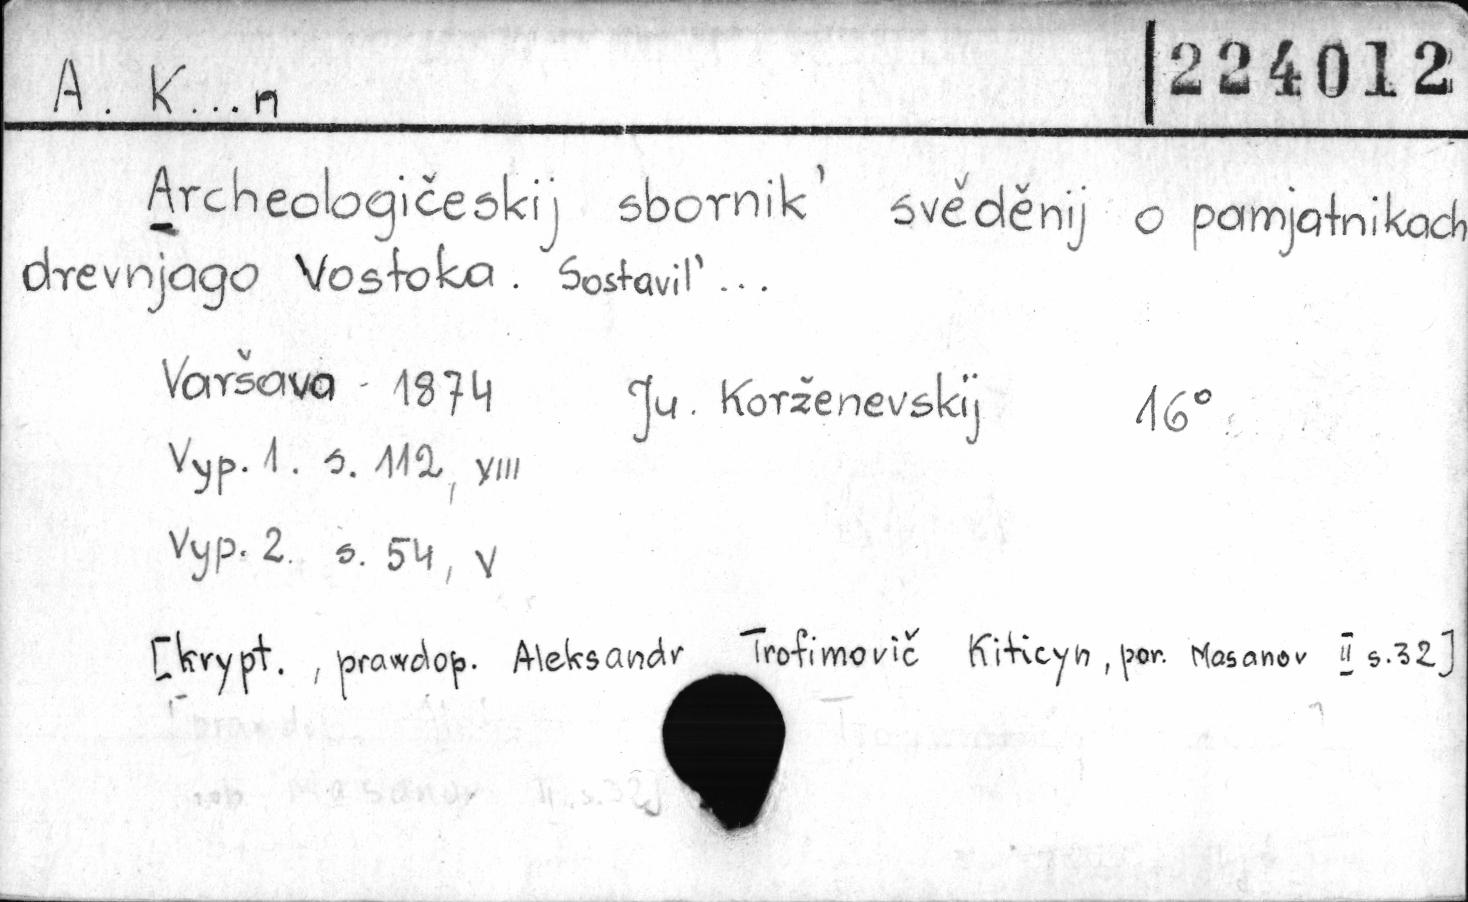 A. K...n
224012
Archeologičeskij sbornik' svěděnij o pamjatnikach
drevnjago Vostoka. Sostavil' ...
Varšava - 1874 Ju. Korženevskij 16°
Vyp. 1. s. 112, VIII
Vyp. 2. s. 54, V
[krypt., prawdop. Aleksandr Trofimovič Kiticyn, por. Masanov II s. 32]